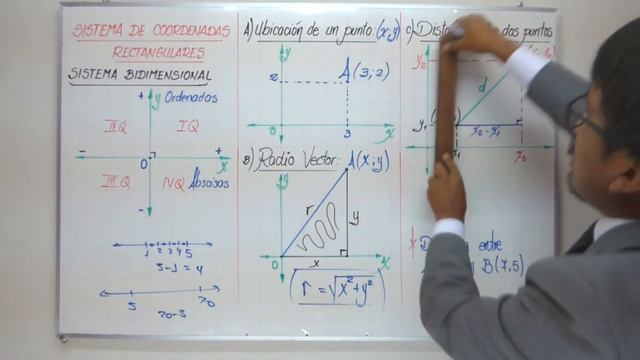 SISTEMA DE COORDENADAS
RECTANGULARES
SISTEMA BIDIMENSIONAL
+ y Ordenadas
IIQ IQ
- 0 + x
IIIQ IVQ Abscisas
-
1 2 3 4 5
5-1=4
5 20
20-5
A) Ubicación de un punto: (x;y)
y
2 A(3;2)
0 3 x
B) Radio Vector: A(x;y)
y
r y
0 x x
r = √x²+y²
C) dos puntos
y₂
d
y₁ x₂-x₁
x₁ x₂
entre
B(7,5)